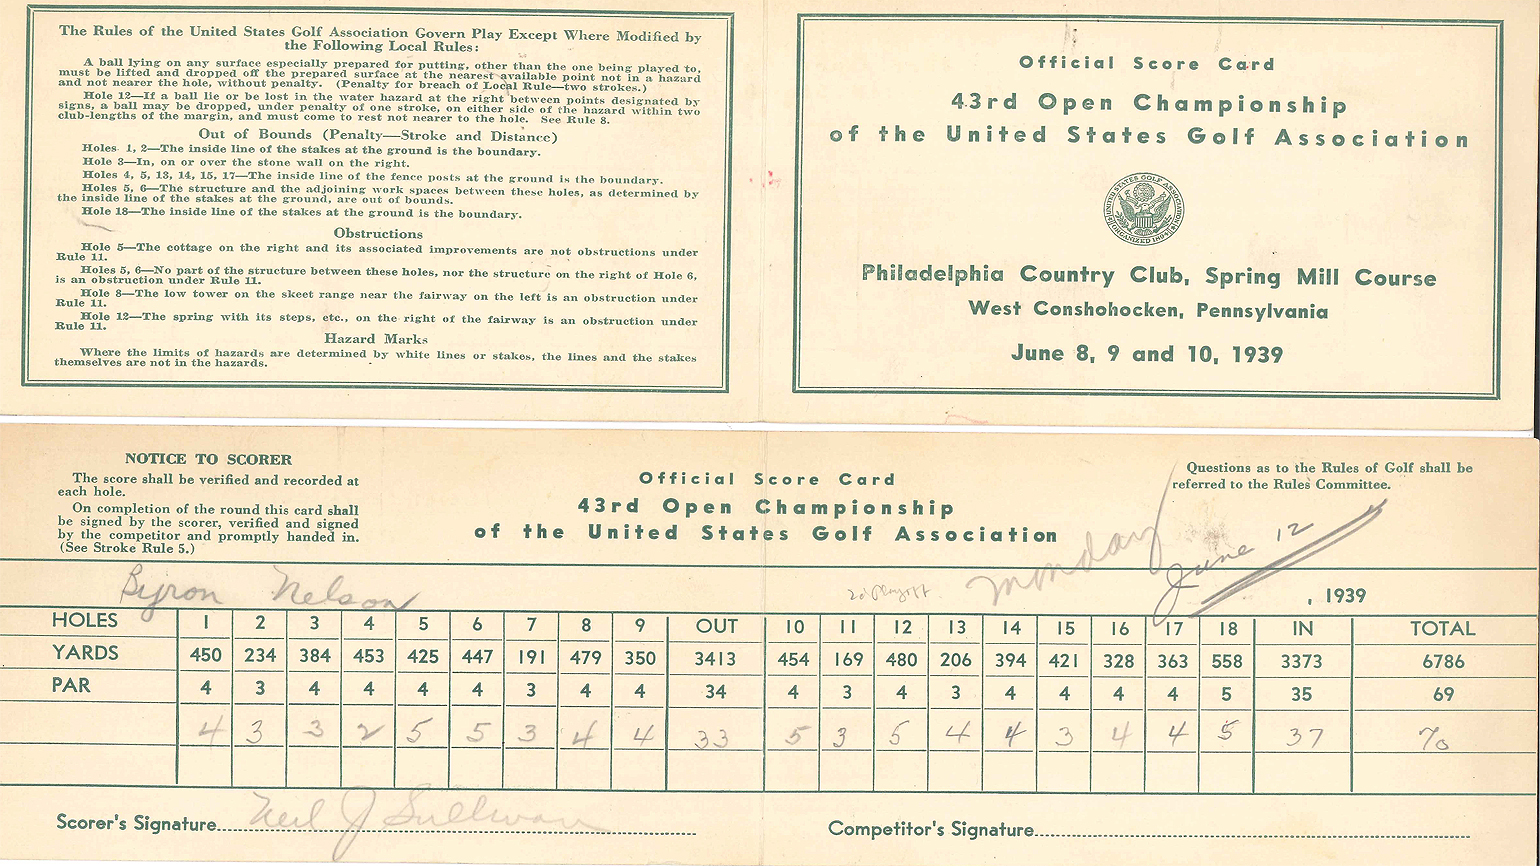 The Rules of the United States Golf Association Govern Play Except Where Modified by
the Following Local Rules:
A ball lying on any surface especially prepared for putting, other than the one being played to,
must be lifted and dropped off the prepared surface at the nearest available point not in a hazard
and not nearer the hole, without penalty. (Penalty for breach of Local Rule—two strokes.)
Hole 12—If a ball lie or be lost in the water hazard at the right between points designated by
signs, a ball may be dropped, under penalty of one stroke, on either side of the hazard within two
club-lengths of the margin, and must come to rest not nearer to the hole. See Rule 8.
Out of Bounds (Penalty—Stroke and Distance)
Holes 1, 2—The inside line of the stakes at the ground is the boundary.
Hole 3—In, on or over the stone wall on the right.
Holes 4, 5, 13, 14, 15, 17—The inside line of the fence posts at the ground is the boundary.
Holes 5, 6—The structure and the adjoining work spaces between these holes, as determined by
the inside line of the stakes at the ground, are out of bounds.
Hole 18—The inside line of the stakes at the ground is the boundary.
Obstructions
Hole 5—The cottage on the right and its associated improvements are not obstructions under
Rule 11.
Holes 5, 6—No part of the structure between these holes, nor the structure on the right of Hole 6,
is an obstruction under Rule 11.
Hole 8—The low tower on the skeet range near the fairway on the left is an obstruction under
Rule 11.
Hole 12—The spring with its steps, etc., on the right of the fairway is an obstruction under
Rule 11.
Hazard Marks
Where the limits of hazards are determined by white lines or stakes, the lines and the stakes
themselves are not in the hazards.
Official Score Card
43rd Open Championship
of the United States Golf Association
UNITED STATES GOLF ASSOCIATION
ORGANIZED 1894
Philadelphia Country Club, Spring Mill Course
West Conshohocken, Pennsylvania
June 8, 9 and 10, 1939
NOTICE TO SCORER
The score shall be verified and recorded at
each hole.
On completion of the round this card shall
be signed by the scorer, verified and signed
by the competitor and promptly handed in.
(See Stroke Rule 5.)
Official Score Card
43rd Open Championship
of the United States Golf Association
Questions as to the Rules of Golf shall be
referred to the Rules Committee.
Byron Nelson 2d Playoff Monday June 12, 1939
HOLES 1 2 3 4 5 6 7 8 9 OUT 10 11 12 13 14 15 16 17 18 IN TOTAL
YARDS 450 234 384 453 425 447 191 479 350 3413 454 169 480 206 394 421 328 363 558 3373 6786
PAR 4 3 4 4 4 4 3 4 4 34 4 3 4 3 4 4 4 4 5 35 69
4 3 3 2 5 5 3 4 4 33 5 3 5 4 4 3 4 4 5 37 70
Scorer's Signature Neil J Sullivan
Competitor's Signature